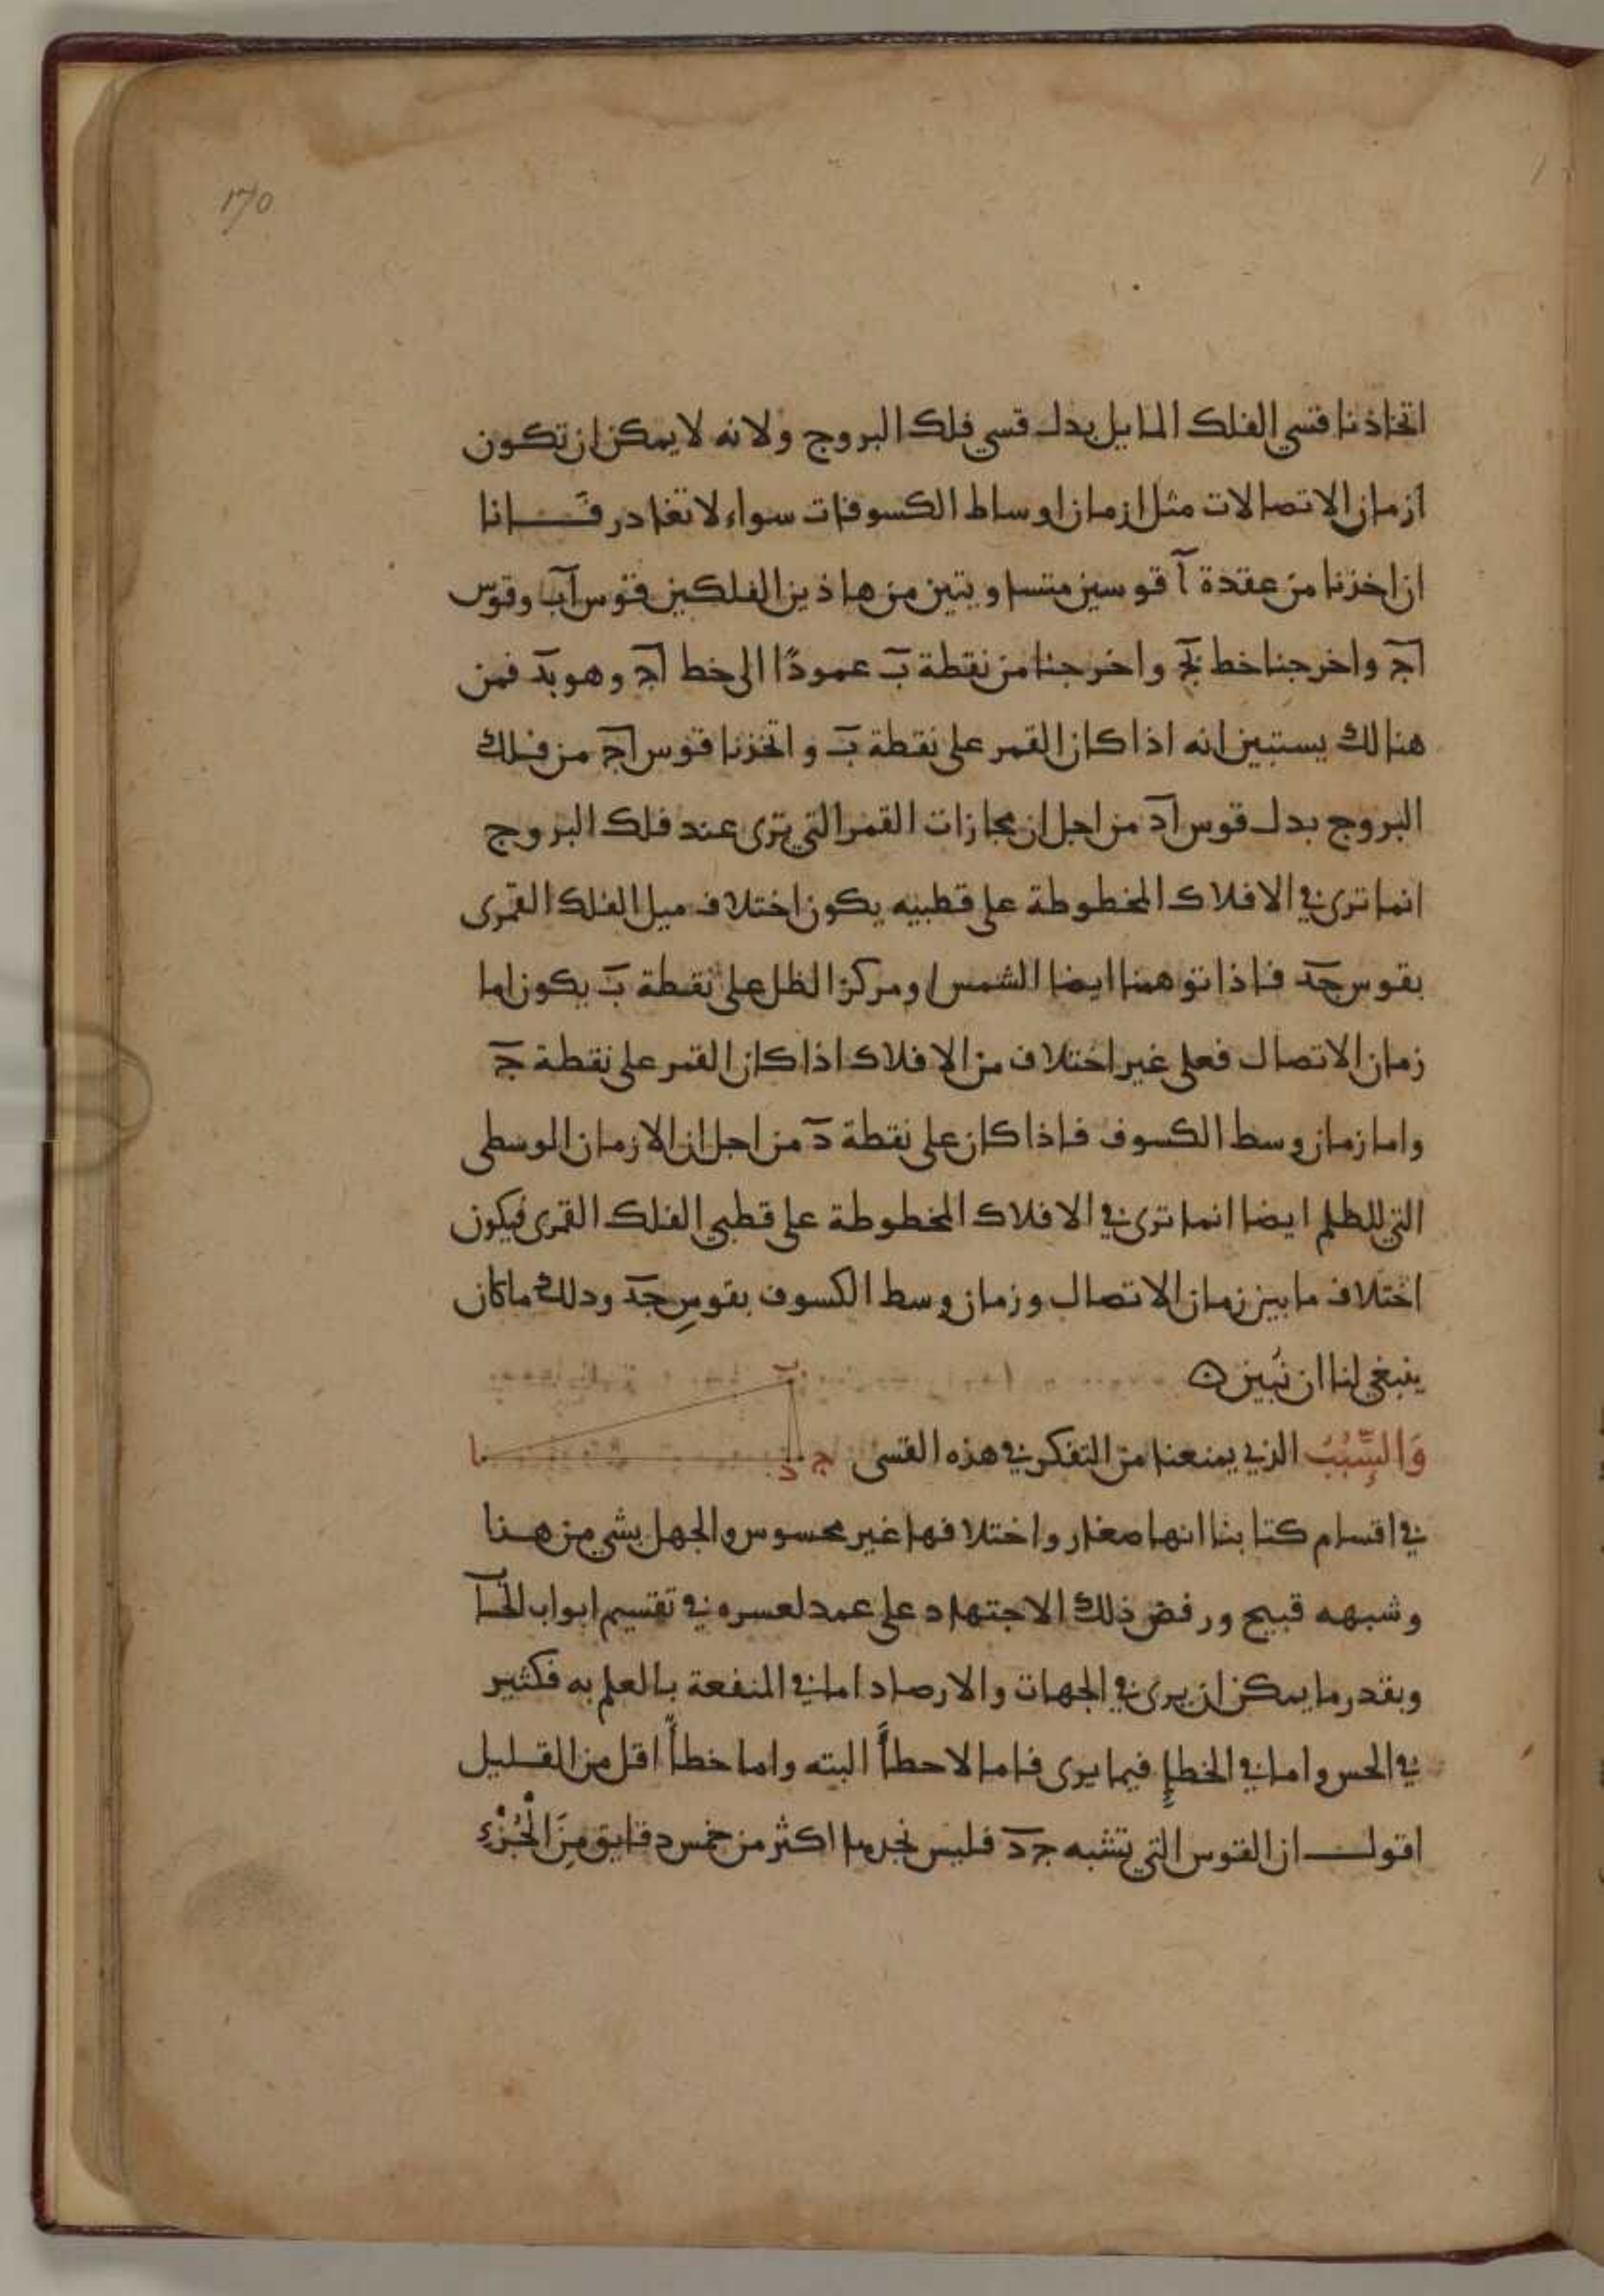 170
اتخاذنا قسي الفلك المايل بدل قسي فلك البروج ولانه لا يمكن ان تكون
ازمان الاتصالات مثل ازمان اوساط الكسوفات سواء لا تغادر فانا
ان اخذنا من عقدة آ قوسين متساويتين من هاذين الفلكين قوس آب وقوس
آج واخرجنا خط بج واخرجنا من نقطة ب عمودًا الى خط آج وهو بد فمن
هنالك يستبين انه اذا كان القمر على نقطة ب واتخذنا قوس آج من فلك
البروج بدل قوس آد من اجل ان مجازات القمر التي ترى عند فلك البروج
انما ترى في الافلاك المخطوطة على قطبيه يكون اختلاف ميل الفلك القمرى
بقوس جد فاذا توهمنا ايضا الشمس او مركز الظل على نقطة ب يكون اما
زمان الاتصال فعلى غير اختلاف من الافلاك اذا كان القمر على نقطة ج
واما زمان وسط الكسوف فاذا كان على نقطة د من اجل ان الازمان الوسطى
التي للظلم ايضا انما ترى في الافلاك المخطوطة على قطبي الفلك القمرى فيكون
اختلاف ما بين زمان الاتصال وزمان وسط الكسوف بقوسِ جد وذلك ما كان
ينبغي لنا ان نُبين ه
ب
ا
د
ج
وَالسَّبَبُ الذي يمنعنا من التفكر في هذه القسى
في اقسام كتابنا انها صغار واختلافها غير محسوس والجهل بشي من هنا
وشبهه قبيح ورفض ذلك الاجتهاد على عمد لعسره في تقسيم ابواب الحسا
وبقدر ما يمكن ان يرى في الجهات والارصاد اما في المنفعة بالعلم به فكثير
في الحس واما في الخطإِ فيما يرى فاما لا خطأً البته واما خطأً اقل من القليل
اقول ان القوس التي تشبه جد فليس نجدها اكثر من خمس دقايق مِنَ الْجُزْءِ